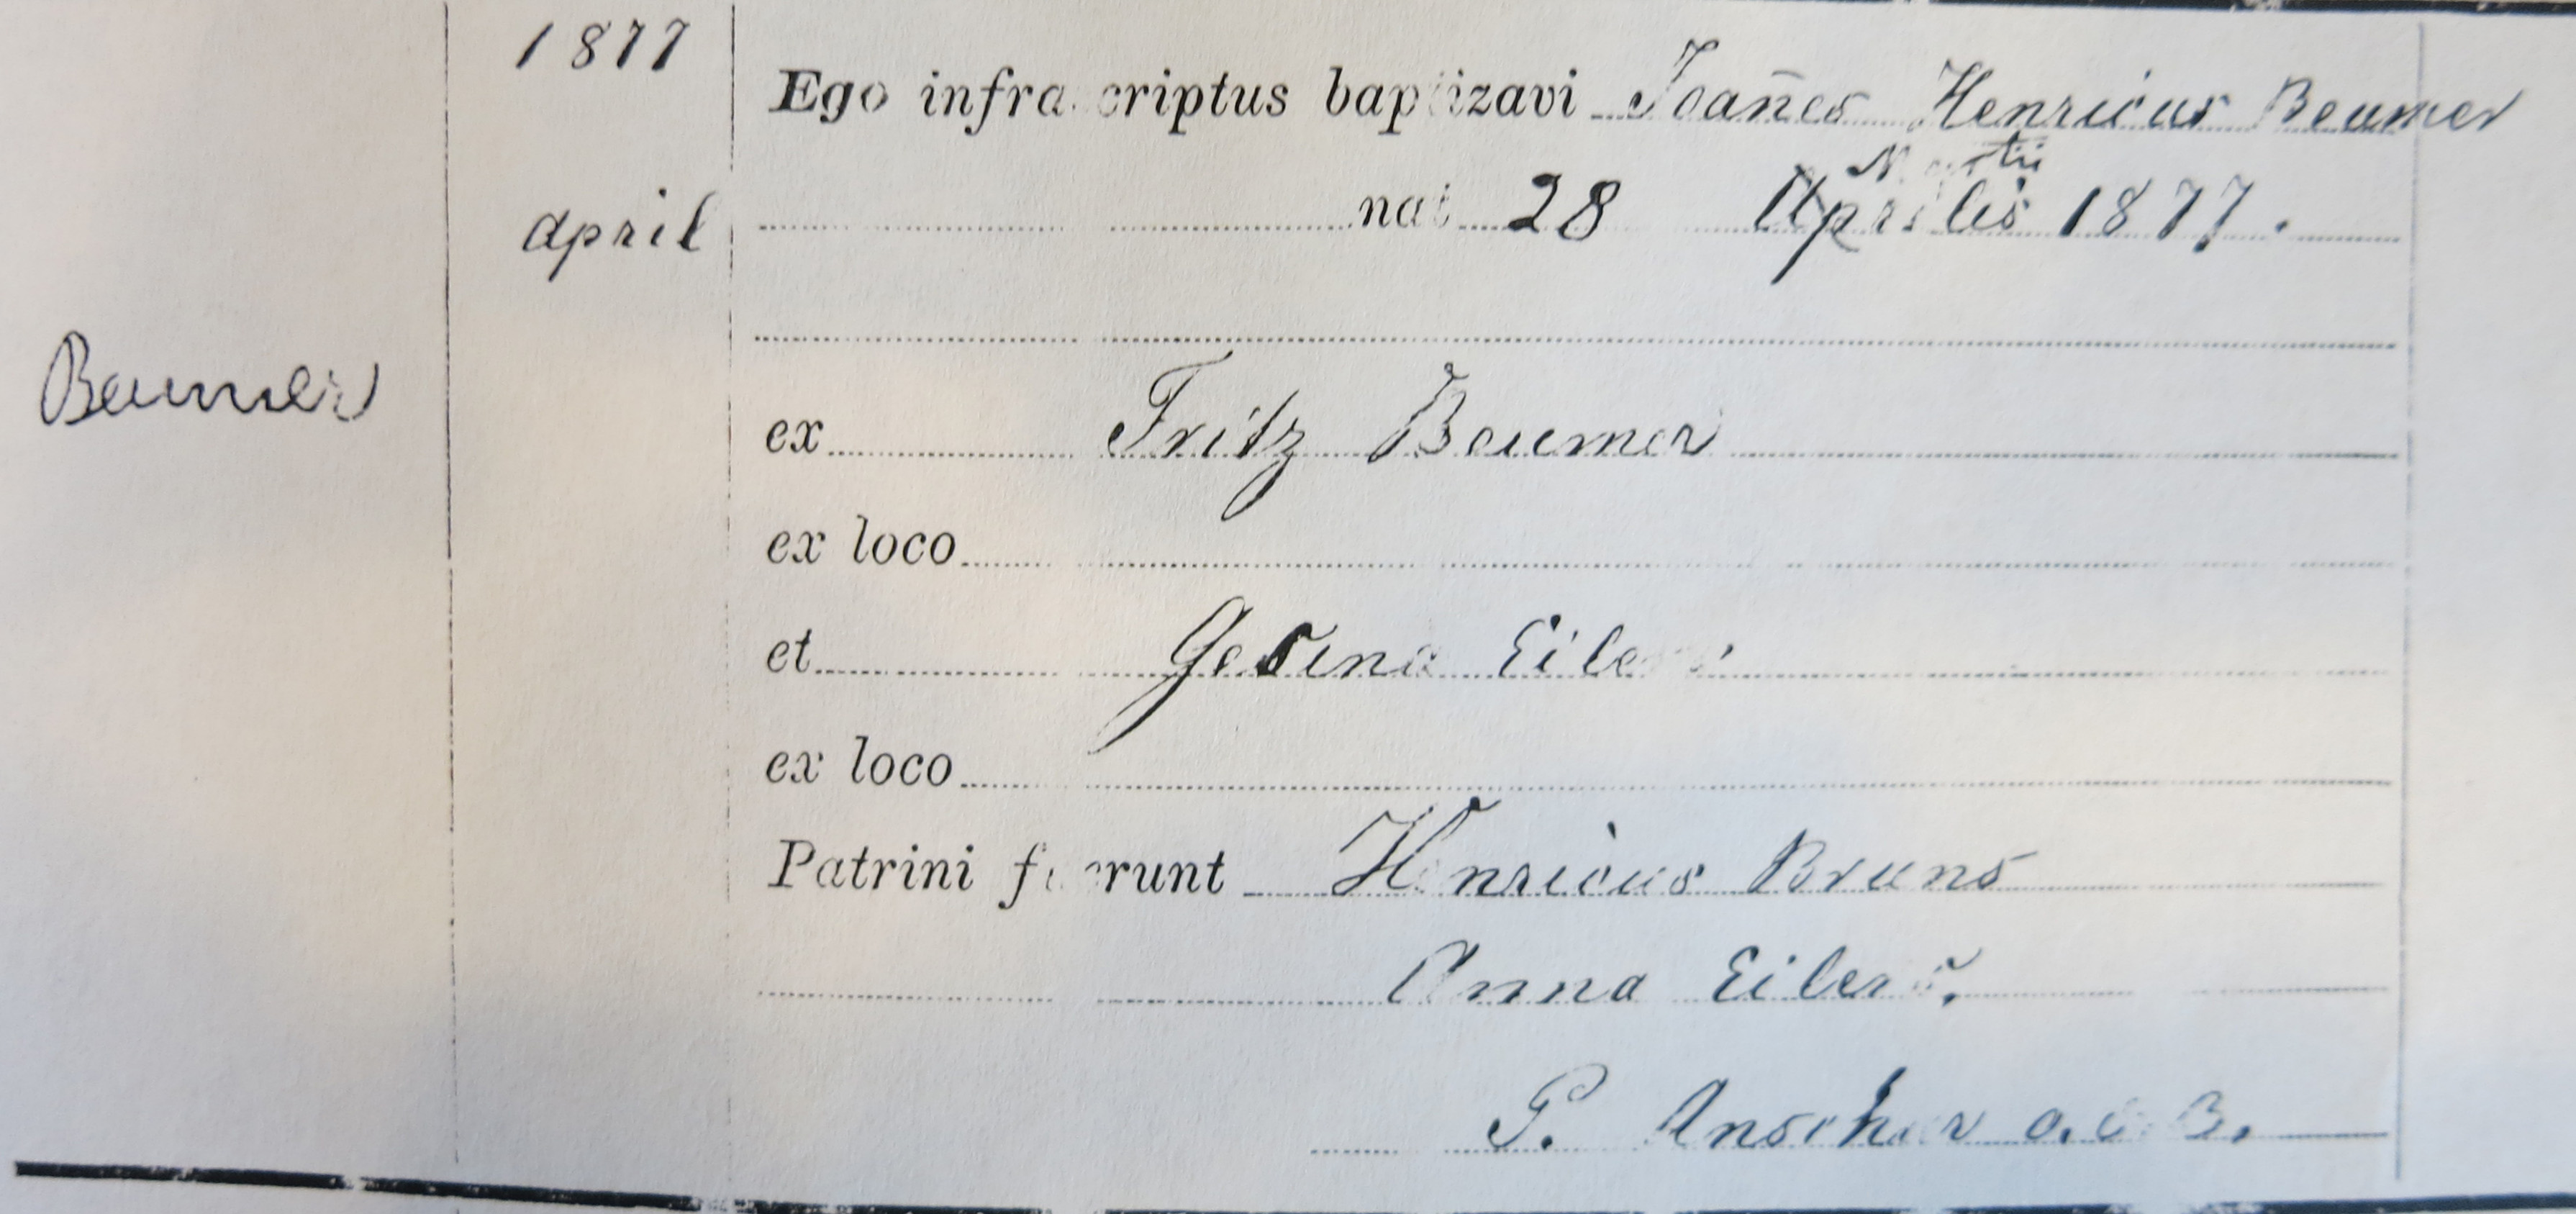 1877
Ego infrascriptus baptizavi Joan̄es Henricus Beumer
april
nat 28 Aprilis 1877.
Beumer
ex Fritz Beumer
ex loco
et Gesina Eilers
ex loco
Patrini fuerunt Henricus Bruns
Anna Eilers.
P. Anschar o.s.B.